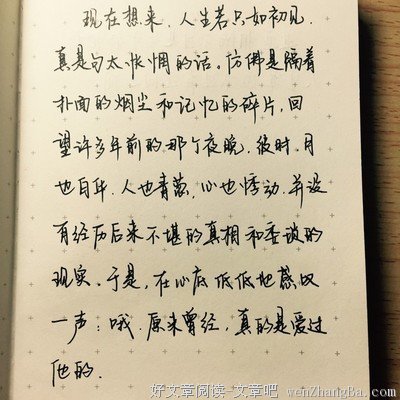 现在想来，人生若只如初见，
真是句太怅惘的话。仿佛是隔着
扑面的烟尘和记忆的碎片，回
望许多年前的那个夜晚。彼时，月
也白华，人也青葱，心也悸动，并没
有经历后来不堪的真相和委琐的
现实。于是，在心底低低地感叹
一声：哦，原来曾经，真的是爱过
他的。
好文章阅读-文章吧（wenZhangBa.com